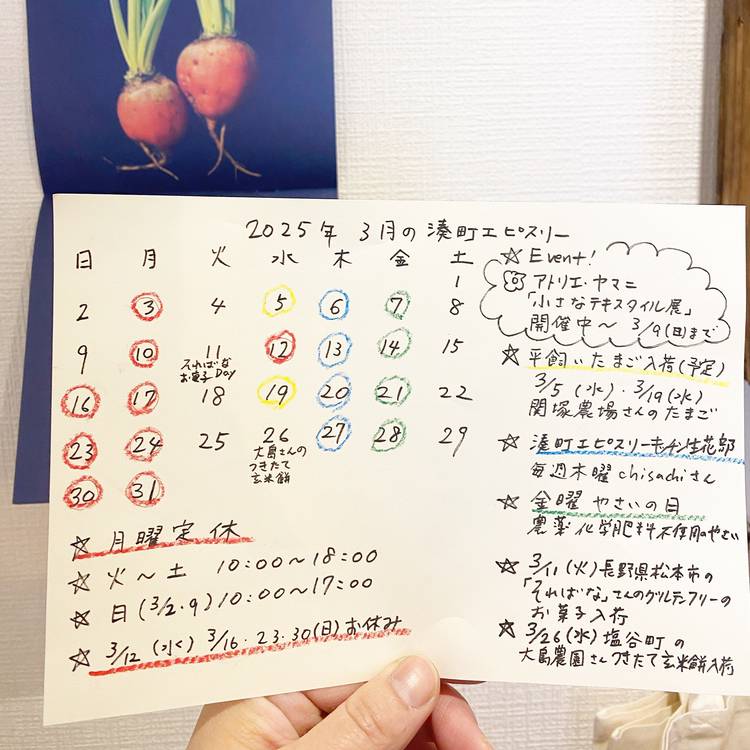 2025年 3月の湊町エピスリー
日 月 火 水 木 金 土
1
2 3 4 5 6 7 8
9 10 11 12 13 14 15
そればな
お菓子Day
16 17 18 19 20 21 22
23 24 25 26 27 28 29
大島さんの
つきたて
玄米餅
30 31
☆ 月曜定休
☆ 火〜土 10:00〜18:00
☆ 日(3/2・9)10:00〜17:00
☆ 3/12(水) 3/16・23・30(日)お休み
☆ Event!
アトリエ・ヤマニ
「小さなテキスタイル展」
開催中〜3/9(日)まで
☆ 平飼いたまご入荷(予定)
3/5(水)・3/19(水)
関塚農場さんのたまご
☆ 湊町エピスリーキッチン生花部
毎週木曜chisachiさん
☆ 金曜 やさいの日
農薬化学肥料不使用のやさい
☆ 3/11(火)長野県松本市の
「そればな」さんのグルテンフリーの
お菓子入荷
☆ 3/26(水)塩谷町の
大島農園さんつきたて玄米餅入荷